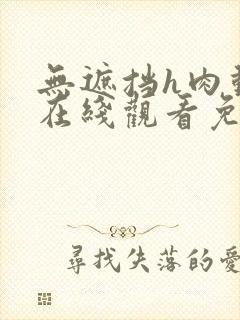 無遮挡h肉
在綫觀看免
尋找失落的愛